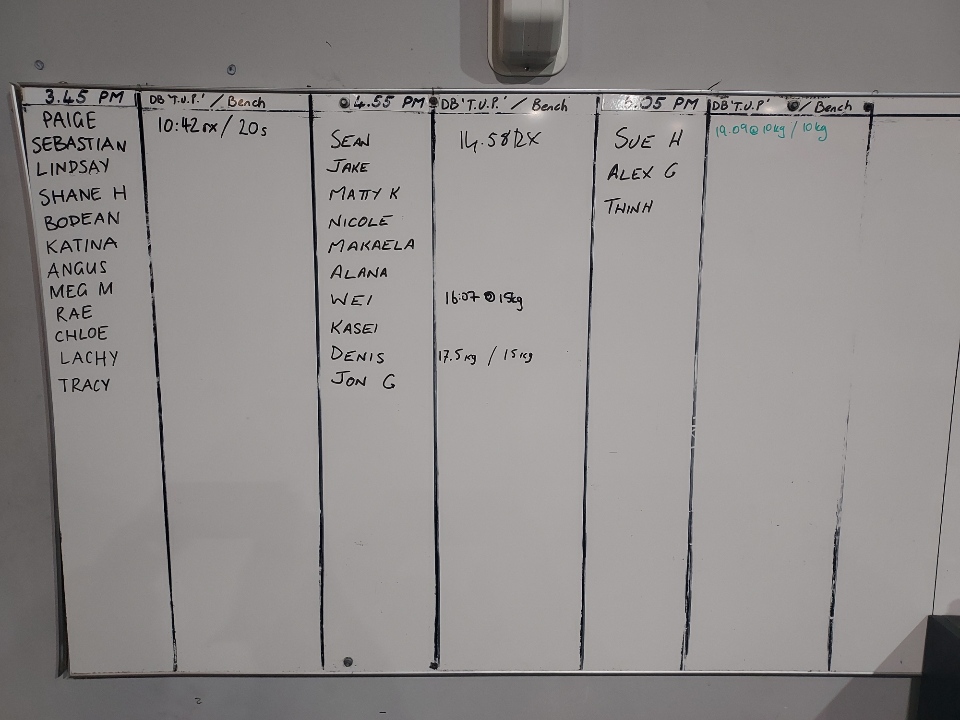 3.45 PM
DB 'T.U.P.' / Bench
PAIGE
10:42 rx / 20s
SEBASTIAN
LINDSAY
SHANE H
BODEAN
KATINA
ANGUS
MEG M
RAE
CHLOE
LACHY
TRACY
4.55 PM
DB 'T.U.P.' / Bench
SEAN
14.58 RX
JAKE
MATTY K
NICOLE
MAKAELA
ALANA
WEI
16:07 @ 15kg
KASEI
DENIS
17.5kg / 15kg
JON G
PM
DB 'T.U.P.' / Bench
SUE H
19.09 @ 10kg / 10kg
ALEX G
THINH